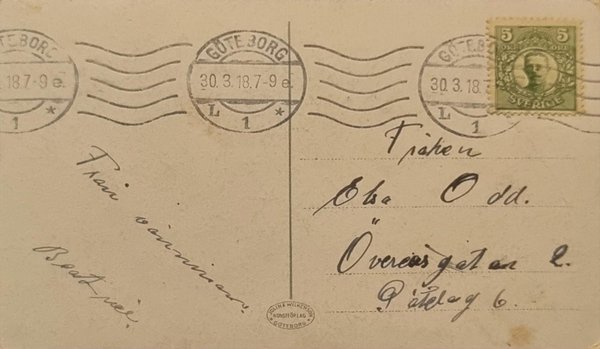 GÖTEBORG
30.3.18.7-9 e.
L 1 *
GÖTEBORG
30.3.18.7-9 e.
L 1 *
GÖTEBORG
30.3.18.
L 1
5 5
ÖRE ÖRE
SVERIGE
Från
väninnan
Beatrice.
Fröken
Elsa Odd.
2.
6.
KONSTFÖRLAG
GÖTEBORG